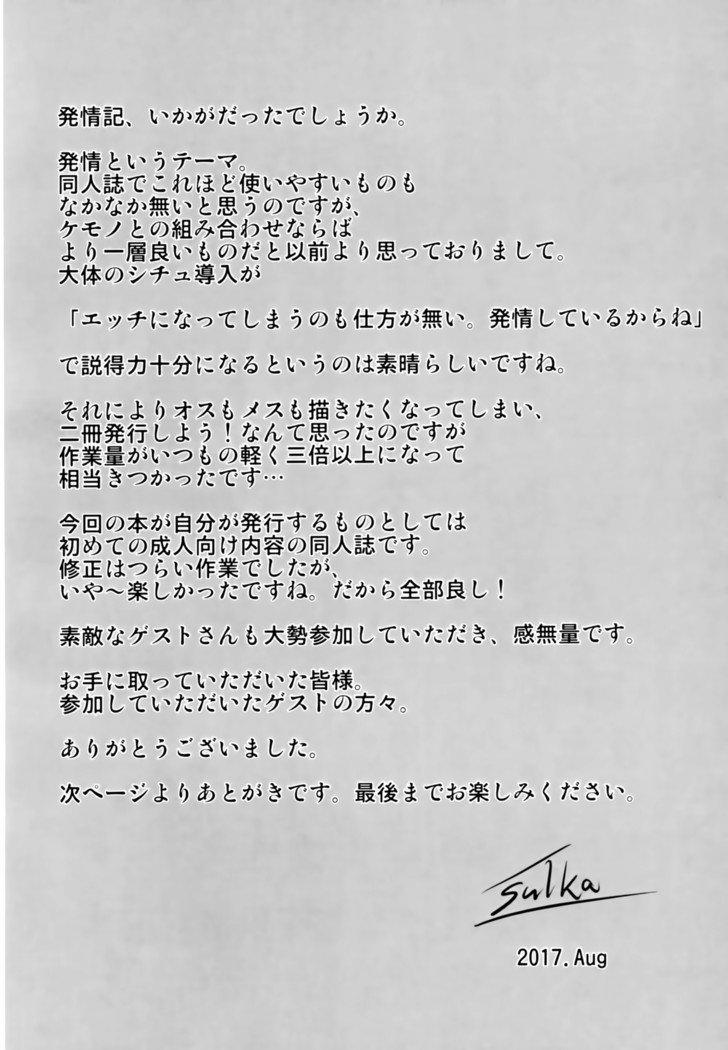 発情記、いかがだったでしょうか。
発情というテーマ。
同人誌でこれほど使いやすいものも
なかなか無いと思うのですが、
ケモノとの組み合わせならば
より一層良いものだと以前より思っておりまして。
大体のシチュ導入が
「エッチになってしまうのも仕方が無い。発情しているからね」
で説得力十分になるというのは素晴らしいですね。
それによりオスもメスも描きたくなってしまい、
二冊発行しよう！なんて思ったのですが
作業量がいつもの軽く三倍以上になって
相当きつかったです…
今回の本が自分が発行するものとしては
初めての成人向け内容の同人誌です。
修正はつらい作業でしたが、
いや～楽しかったですね。だから全部良し！
素敵なゲストさんも大勢参加していただき、感無量です。
お手に取っていただいた皆様。
参加していただいたゲストの方々。
ありがとうございました。
次ページよりあとがきです。最後までお楽しみください。
Sulka
2017.Aug